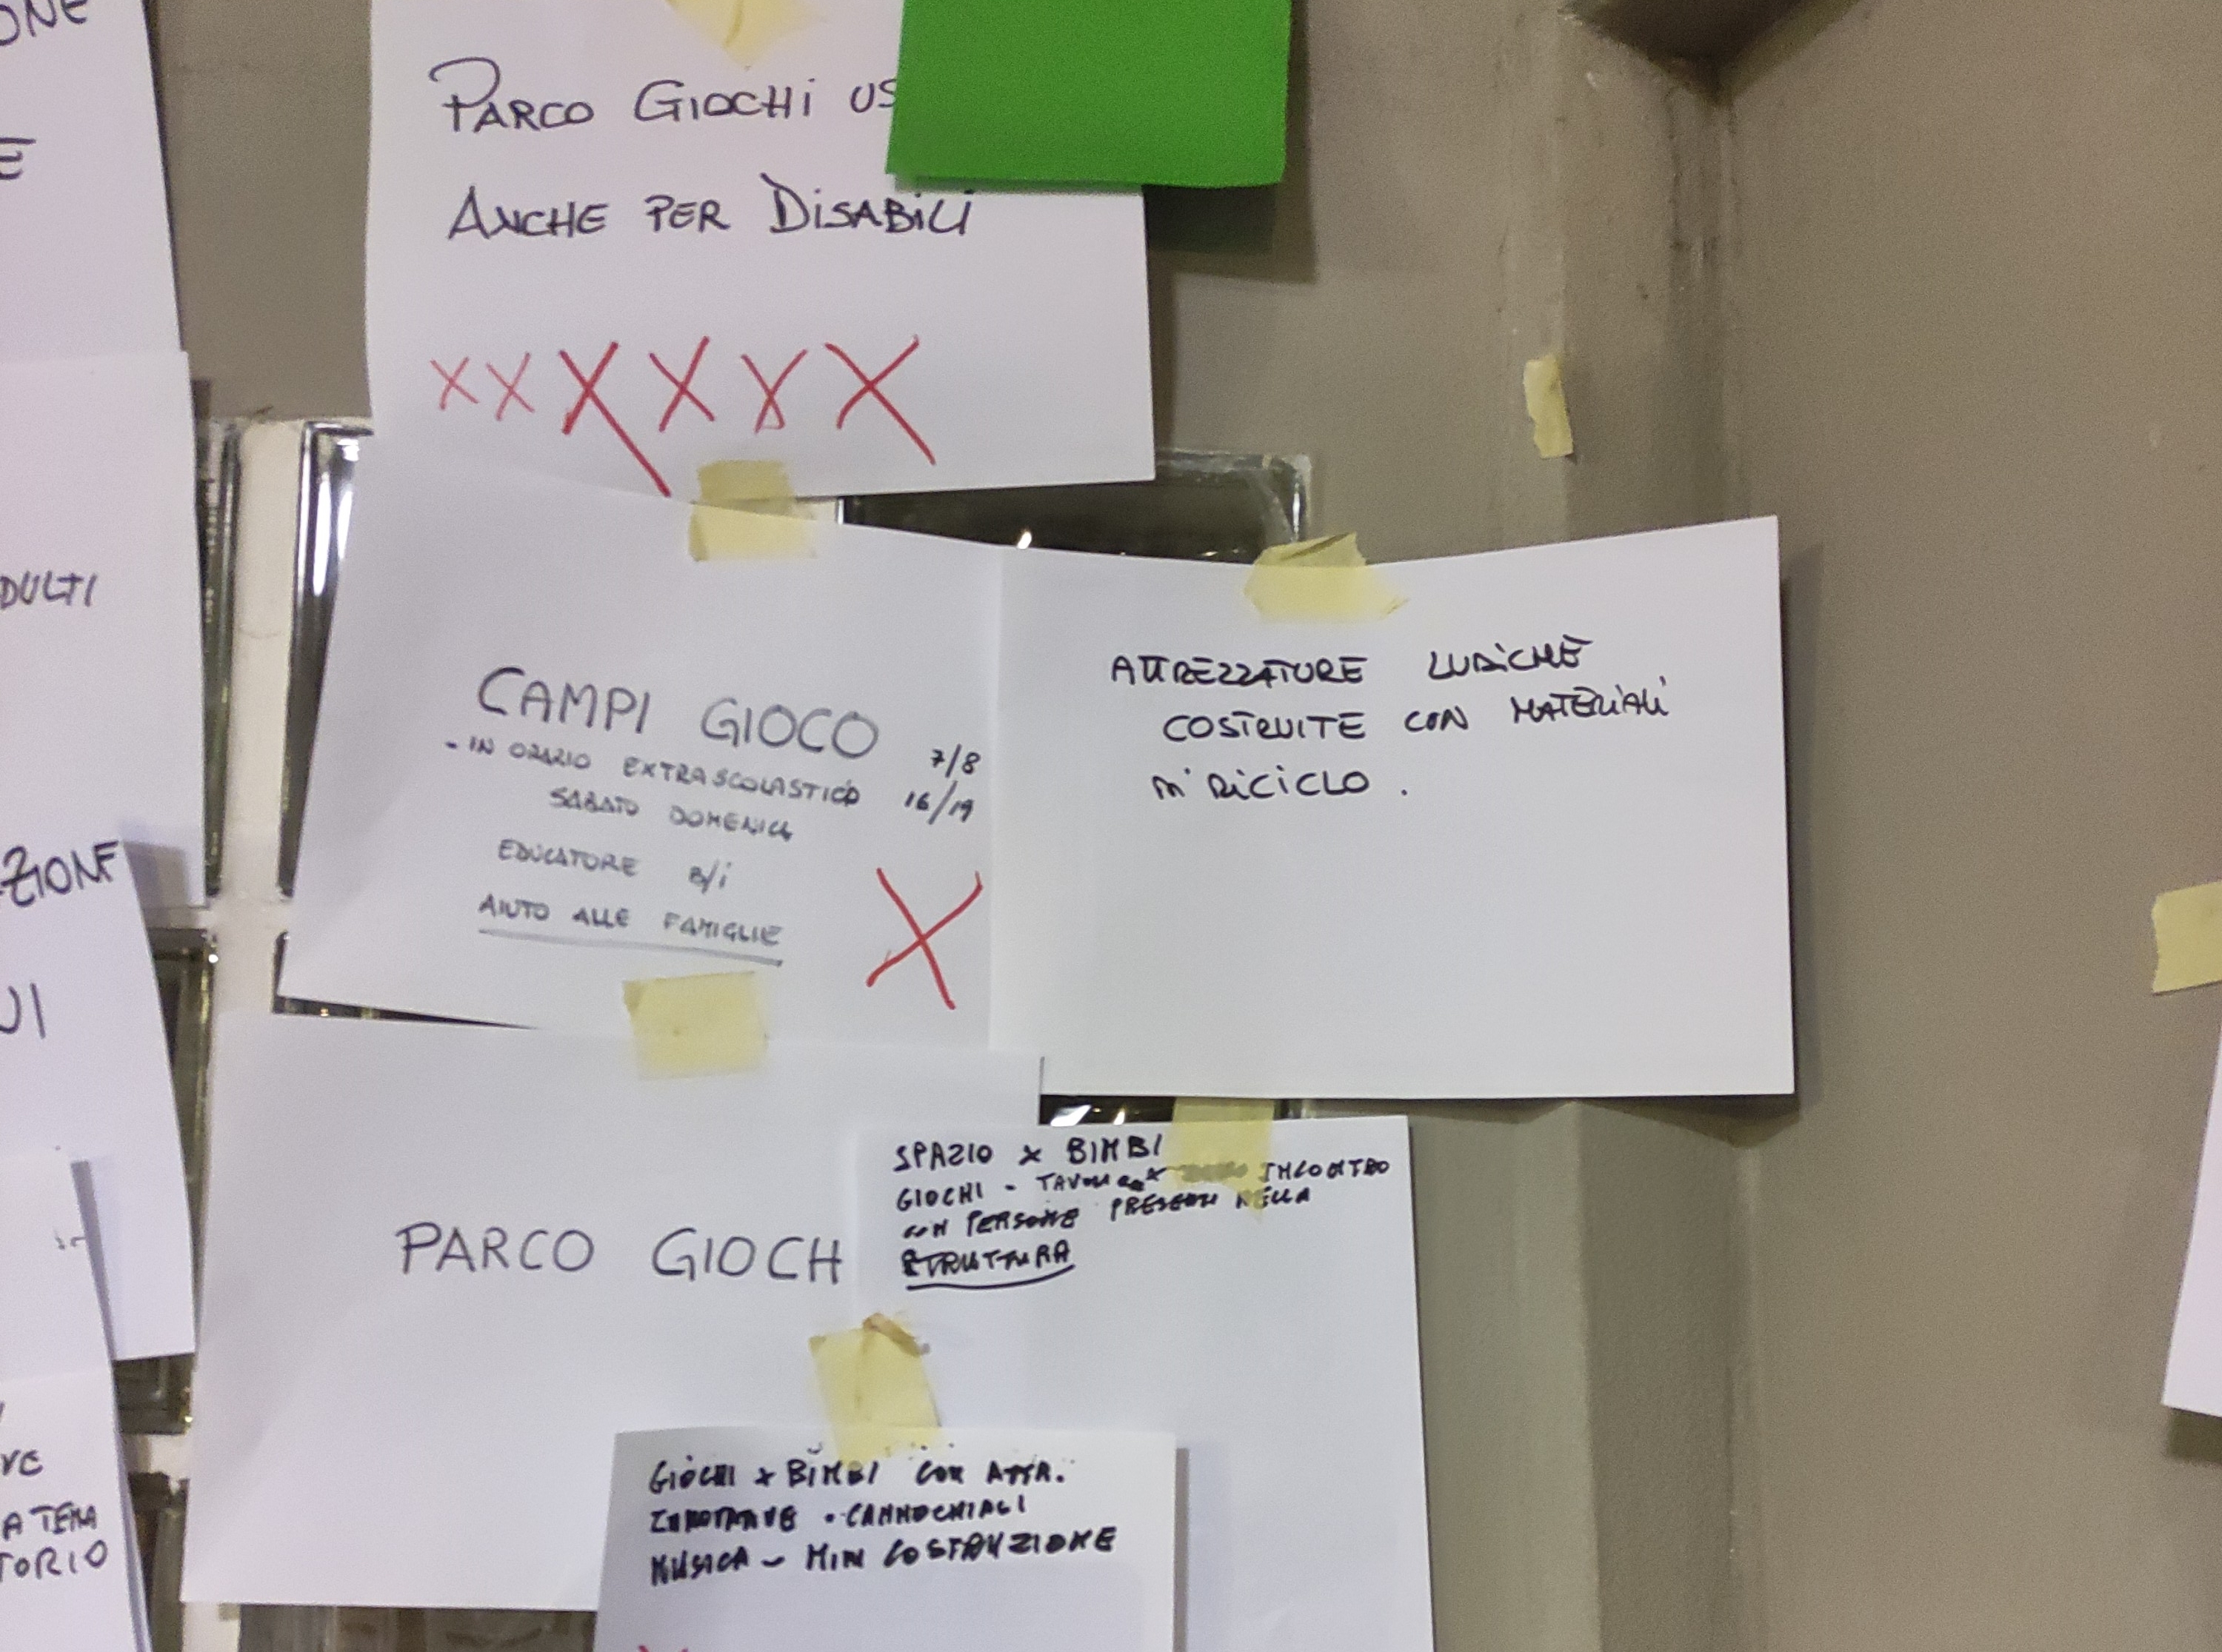 ONE
E
DULTI
ZIONE
UI
A TEMA
TORIO
PARCO GIOCHI US
ANCHE PER DISABILI
X X X X X X
CAMPI GIOCO
- IN ORARIO EXTRASCOLASTICO 7/8 16/19
SABATO DOMENICA
EDUCATORE
AIUTO ALLE FAMIGLIE
X
ATTREZZATURE LUDICHE
COSTRUITE CON MATERIALI
DI RICICLO.
PARCO GIOCH
SPAZIO X BIMBI
GIOCHI - INCONTRO
CON PERSONE PRESENTI NELLA
STRUTTURA
GIOCHI X BIMBI CON ATTR.
CANNOCHIALI
MUSICA - MINI COSTRUZIONE